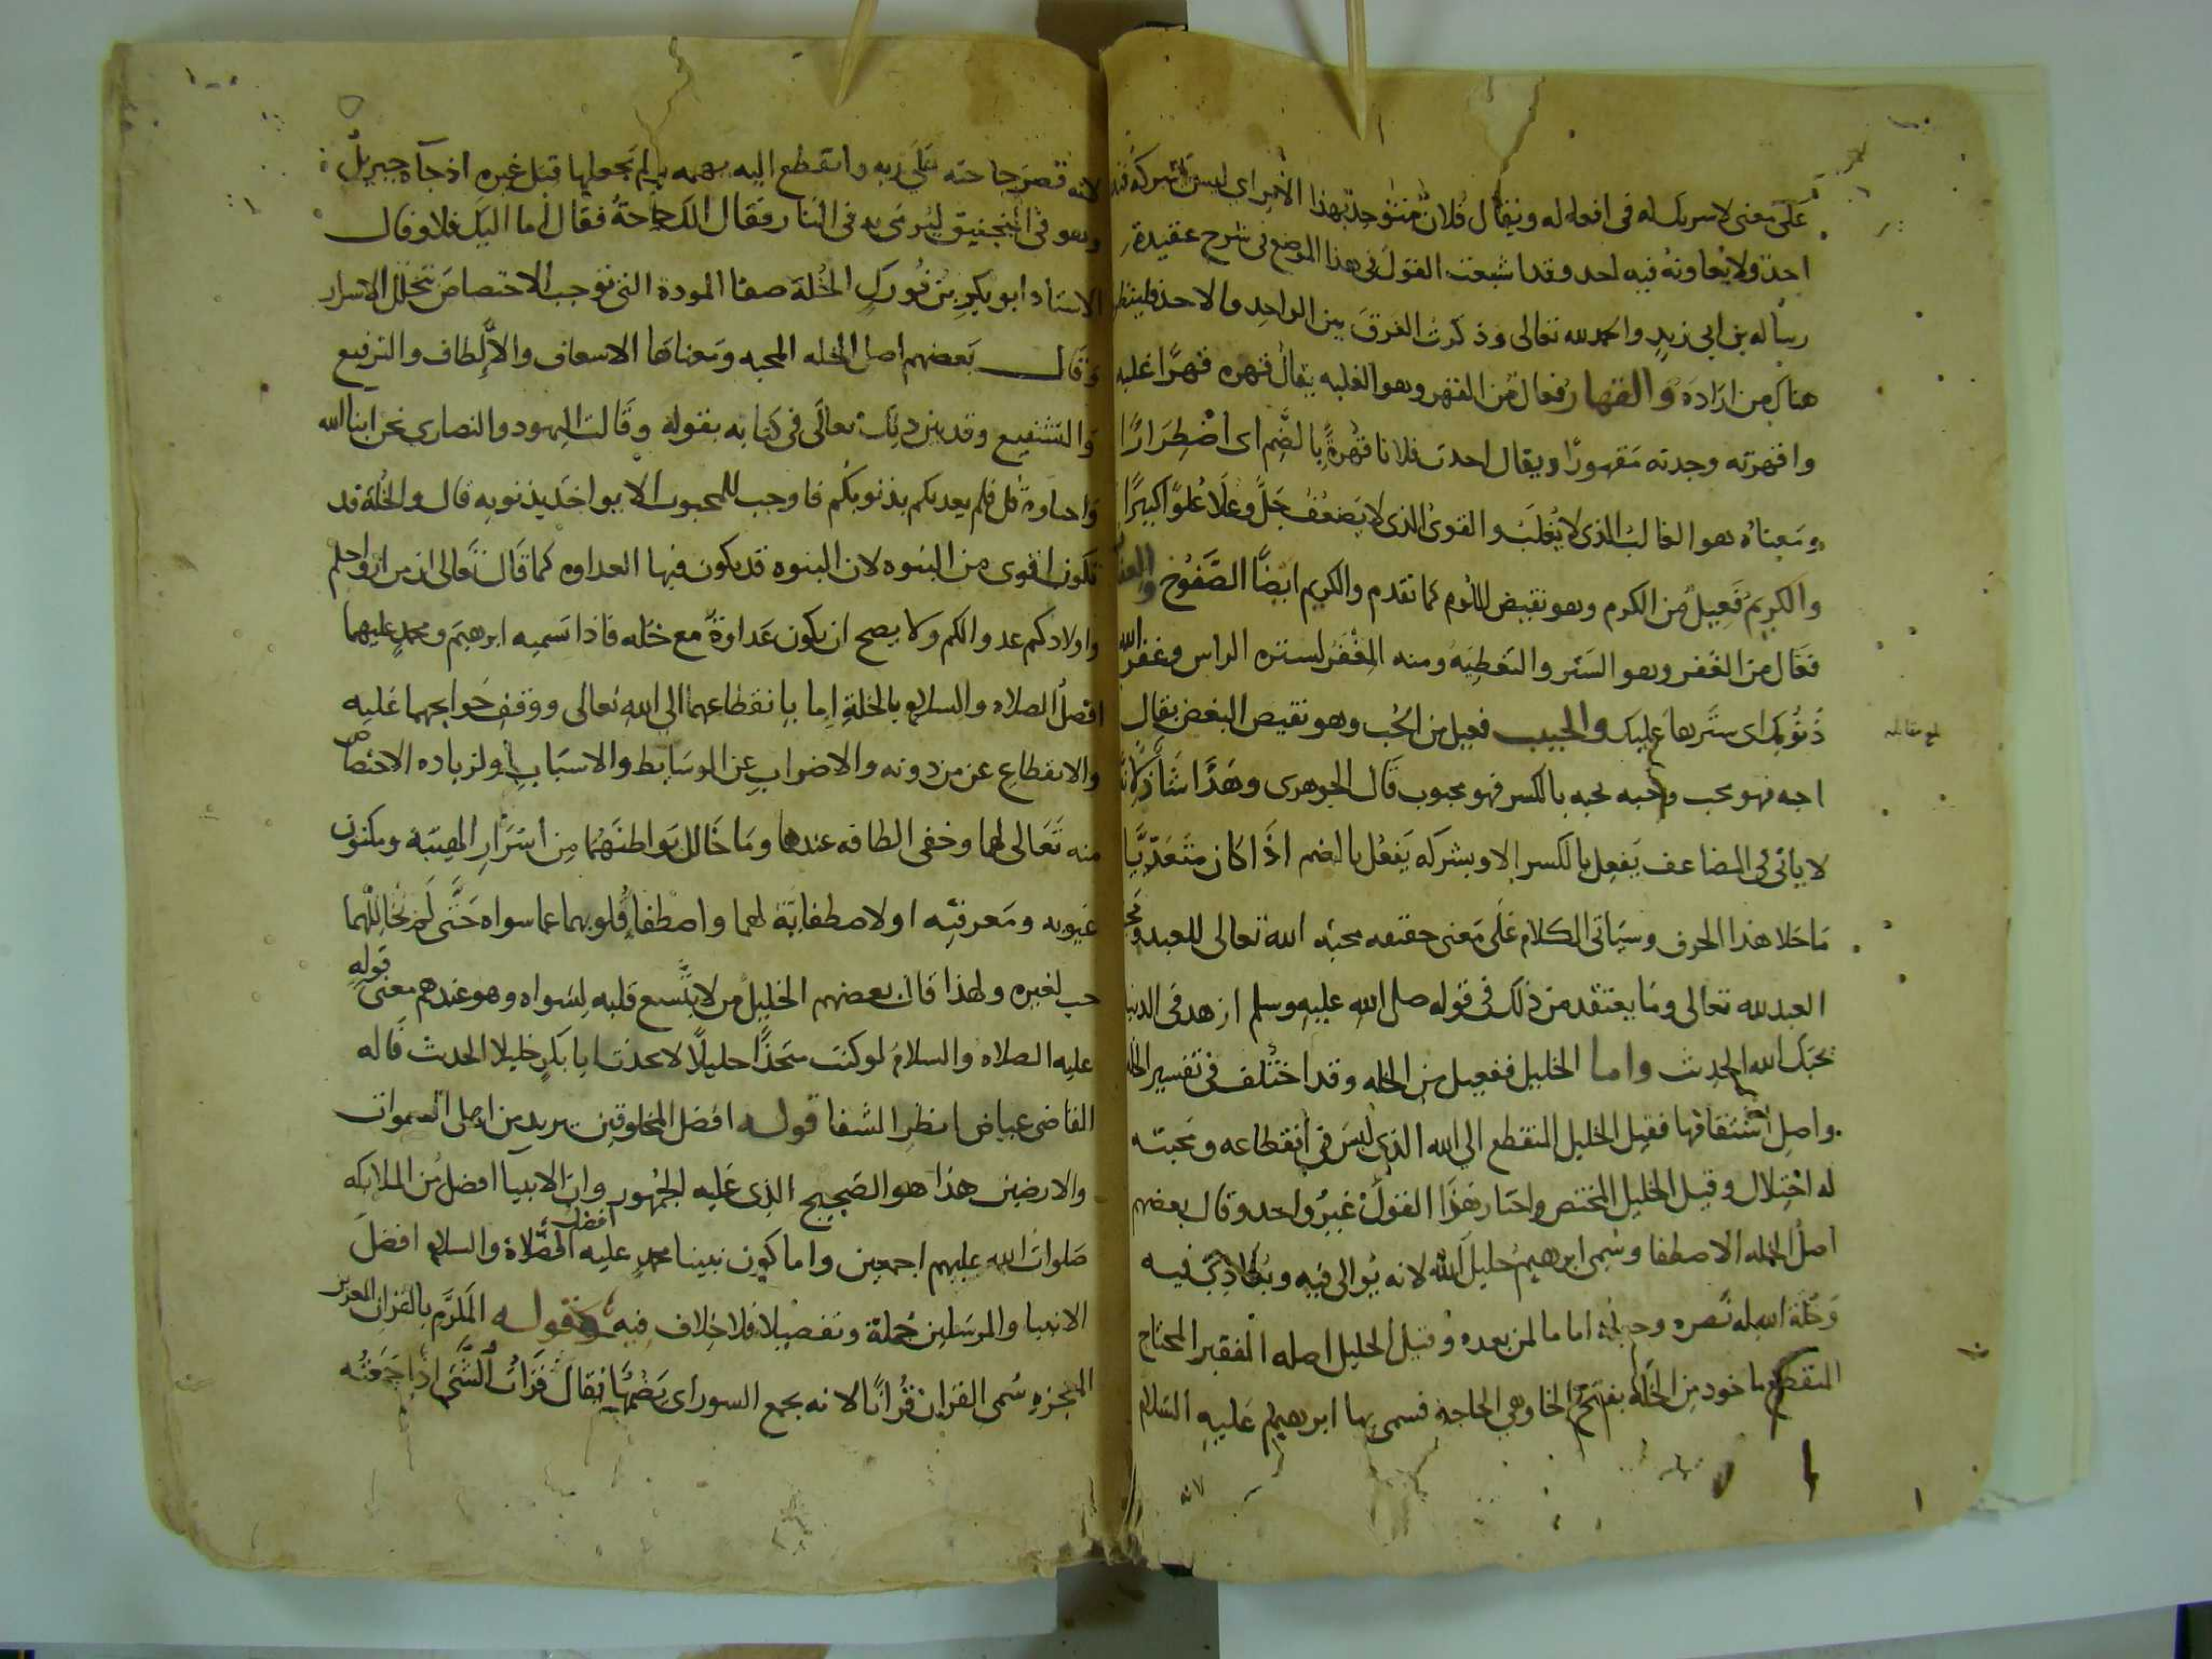 على معنى لا شريك له في افعاله ويقال فلان متوحد بهذا الامر اى ليس يشركه فيه
احد ولا يعاونه فيه احد وقد اشبعت القول في هذا الموضع في شرح عقيدة
رساله بن ابي زيد والحمد لله تعالى وذكرت الفرق بين الواحد والاحد فلينظر
هناك من اراده والقهار فعال من القهر وهو الغلبه يقال قهره قهرًا غلبه
واقهرته وجدته مقهورًا ويقال اخذت فلانا قُهرةً بالضم اى اضْطِرَارًا
ومعناه هو الغالب الذى لا يُغلَبُ والقوى الذى لا يَضعُفُ جَلَّ وعَلَا عُلوًّا كبيرًا
والكريم فَعِيلٌ من الكرم وهو نقيض اللؤم كما تقدم والكريم ايضًا الصَّفُوح والغفار
فعّال من الغفر وهو السَتر والتغطيَه ومنه المِغْفَر لستره الراس وغفر الله
ذُنُوبك اى ستَرها عليك والحبيب فعيل من الحُب وهو نقيض البغض يقال
احبه فهو محب وحبه يحبه بالكسر فهو محبوب قال الجوهرى وهَذَا شَاذ لانه
لا ياتى في المضاعف يَفعِل بالكسر الا ويشركه يَفعُل بالضم اذَا كان متَعَدّيًا
ما خلا هذا الحرف وسيَاتى الكلام عَلَى مَعنى حقيقه محبّه الله تعالى للعبد ومحبة
العبد لله تعالى وما يعتقد من ذلك في قوله صلى الله عليه وسلم ازهد في الدنيا
يحبك الله الحديث واما الخليل ففعيل من الخله وقد اختُلف في تفسير الخله
واصل اشتقاقها فقيل الخليل المنقطع الى الله الذى ليس في انقطاعه ومحبته
له اختِلال وقيل الخليل المختص واختار هَذَا القولَ غيرُ واحد وقال بعضهم
اصل الخله الاصطفا وسُمى ابرهيم خليل الله لانه يُوالى فيه ويُعَادِى فيه
وخُلّة الله له نَصره وجعله اماما لمن بعده وقيل الخليل اصله الفقير المحتاج
المنقطع ماخوذ من الخَلّه بفتح الخا وهى الحاجه فسمى بها ابرهيم عَليهِ السَلام
لانه
بلغ مقابله
لانه قَصَرَ حاجته عَلَى ربه وانقطع اليه بهمه ولم يَجعلها قِبَل غيرهِ اذ جآه جبريلُ
وهو في المنجنيق ليُرمَى به في النار فقال الكَ حاجَةٌ فقال اما اليك فلا وقال
الاستاذ ابو بكرِ بن فُورك الخُلة صفا المودة التى توجب الاختصاص بتخلل الاسرار
وقال بَعضهم اصل الخله المحبه ومَعناها الاسعاف والاِلطاف والترفيع
والتشفيع وقد بين ذلك تعالى في كتابه بقوله وقَالت اليهود والنصارى نحن ابنا الله
واحباوه قل فلم يعذبكم بذنوبكُم فاوجب للمحبوب الا يواخذ بذنوبه قال والخُلة قد
تكون اقوى من البنوه لان البنوه قد يكون فيها العداوه كما قَال تعَالى ان من ازواجكم
واولادكم عدوا لكم ولا يصح ان يكون عَداوةٌ مع خله فاذا تَسميه ابرهيمَ ومحمدٍ عليهما
افضلُ الصلاه والسلام بالخلةِ اِما بانقطاعهما الى الله تعالى ووقفِ حَوايجهما عَليه
والانقطاعِ عن من دونه والاضرابِ عن الوسَايط والاسبَاب او لزياده الاختصاص
منه تَعَالى لهما وخفى الطافه عندهما ومَا خَالل بَواطنَهُما مِن اسرَارِ الهيّته ومكنون
غيوبه ومَعرفتِه او لاصطفايّه لهما واصْطفا قُلوبهما عما سواه حَتَّى لم يُخَالِلْهما
حب لغيره ولهذا قال بعضهم الخليلُ من لا يتَّسع قلبه لِسَواه وهو عندهم معنى قوله
عليه الصلاه والسلامُ لو كنتُ متخذًا خليلًا لاتخذت ابا بكرٍ خليلا الحديث قَاله
القاضى عياض انظرِ الشفا قوله افضل المخلوقين يريد من اهل السموات
والارضين هذا هو الصَحِيح الذى عَليه الجمهُور وان الانبيآ افضل من الملايكه
صَلوات الله عليهم اجمعين واما كون نبينا محمدٍ عليه افضل الصَّلاة والسلام افضلَ
الانبيا والمرسَلين جُملةً وتفصِيلًا فلا خِلاف فيه وقوله المكَرَّم بالقرآن العزيز
المعجزهِ سُمى القرَان قُرآنًا لانه يجمع السور اى يَضُمّها يقال قَرَاتُ الشَّى اذَا جَمَعتُه